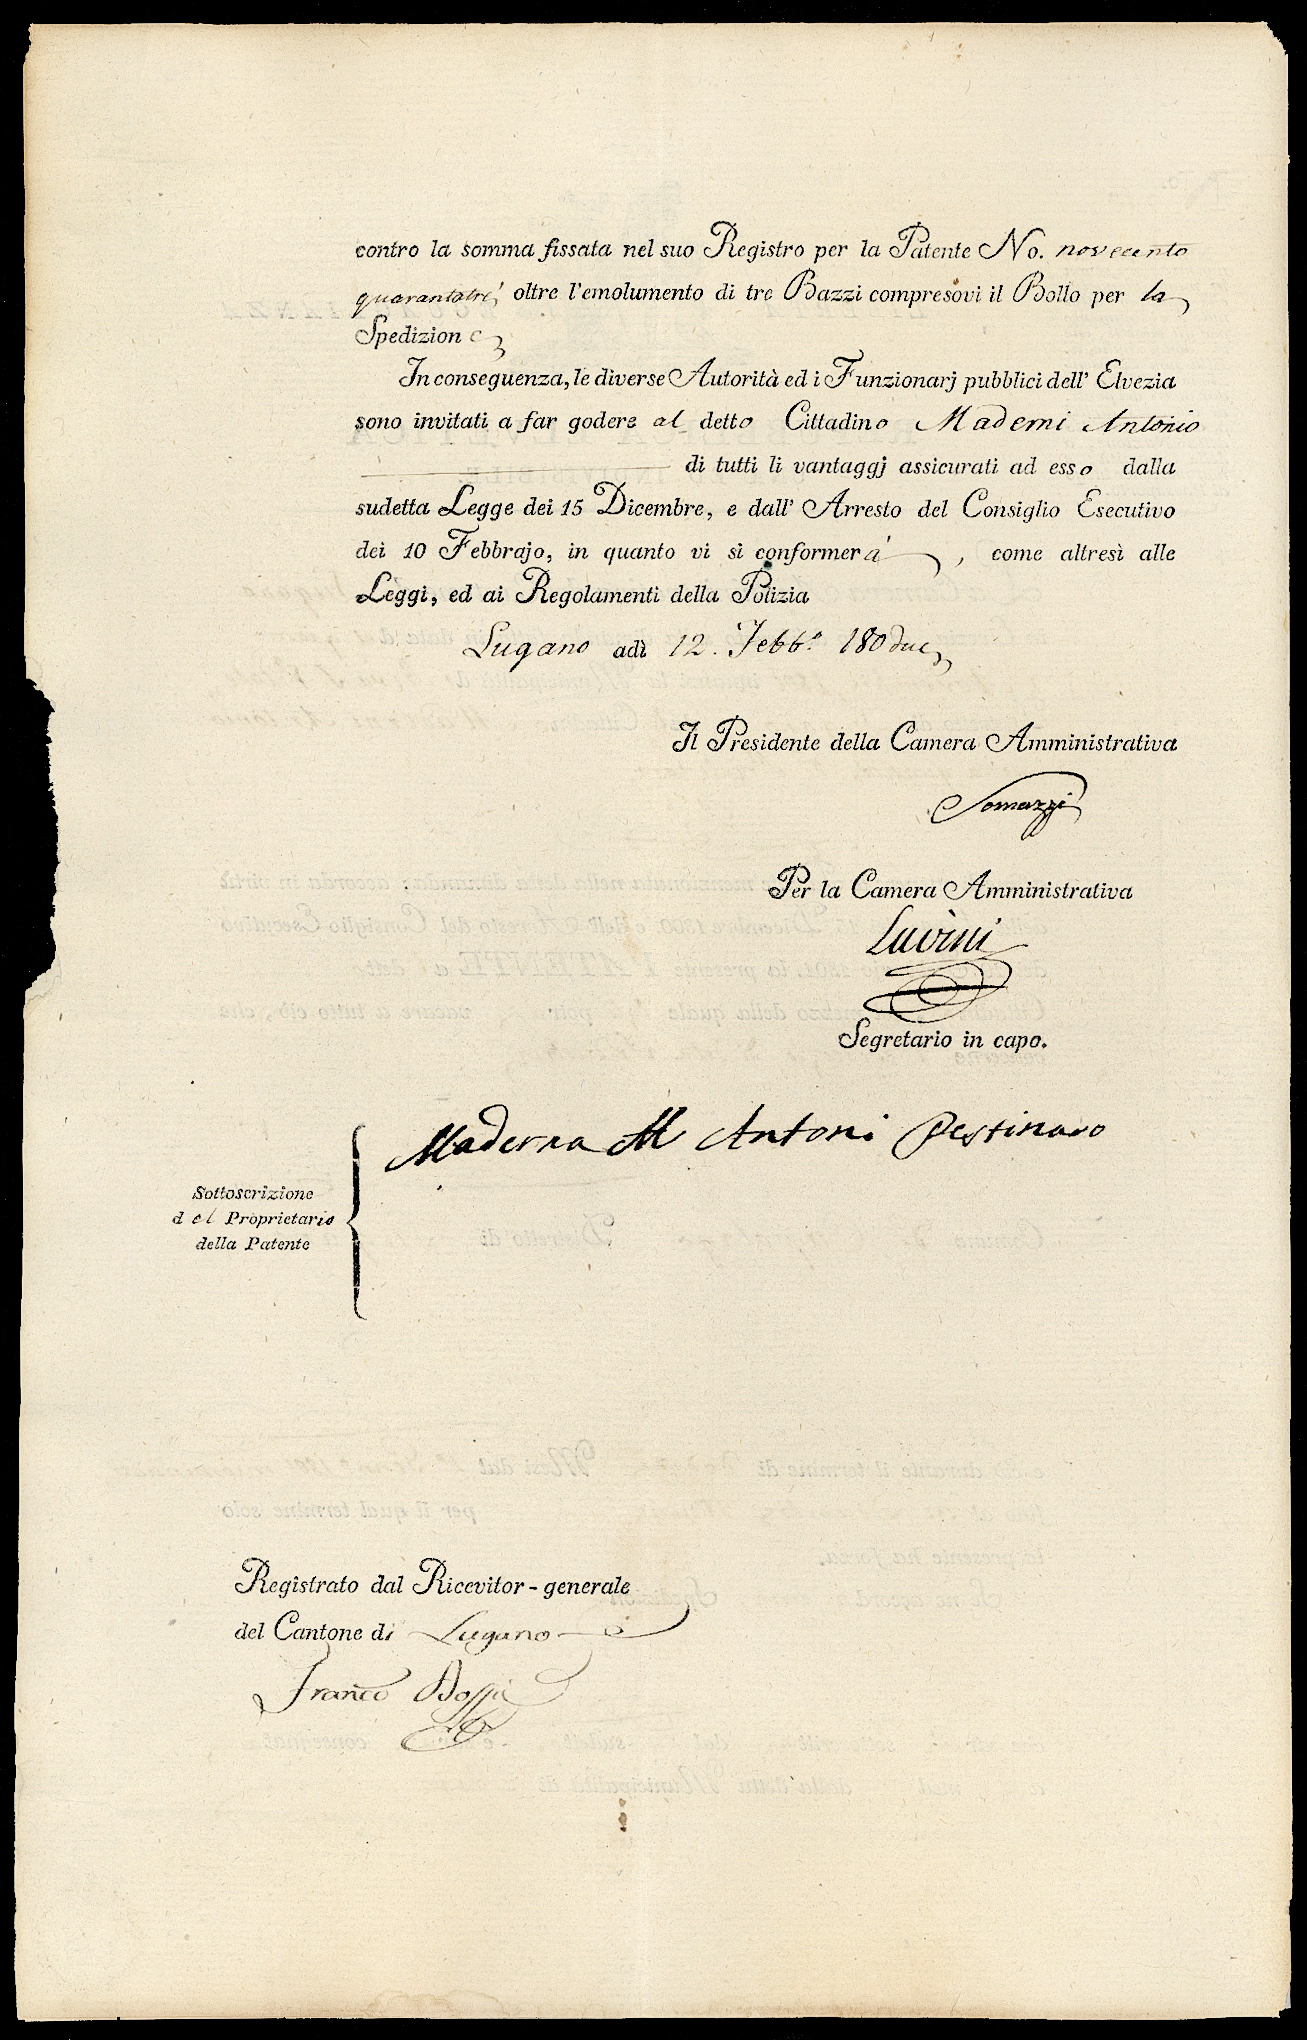 contro la somma fissata nel suo Registro per la Patente No. novecento
quarantatre, oltre l'emolumento di tre Bazzi compresovi il Bollo per la
Spedizione
In conseguenza, le diverse Autorità ed i Funzionarj pubblici dell' Elvezia
sono invitati a far godere al detto Cittadino Maderni Antonio
di tutti li vantaggj assicurati ad esso dalla
sudetta Legge dei 15 Dicembre, e dall' Arresto del Consiglio Esecutivo
dei 10 Febbrajo, in quanto vi si conformerà, come altresì alle
Leggi, ed ai Regolamenti della Polizia
Lugano adì 12. Febb.° 180due
Il Presidente della Camera Amministrativa
Somazzi
Per la Camera Amministrativa
Luvini
Segretario in capo.
Maderna M Antoni Pestinaro
Sottoscrizione
del Proprietario
della Patente
Registrato dal Ricevitor-generale
del Cantone di Lugano
Franco Bossi